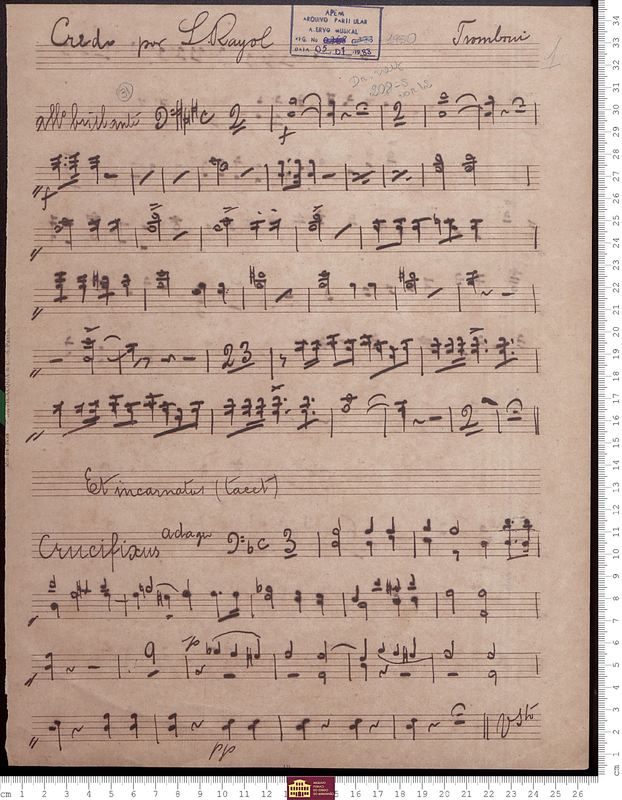 Credo por L Rayol
APEM
ARQUIVO PARTICULAR
ACERVO MUSICAL
REG. No
DATA 05 01 1983
Tromboni
1
31
209-S
allº brillante C 2 f 2
f
23
2
Et incarnatus (tacet)
Crucifixus adagio C 3
p
pp
cm 1 2 3 4 5 6 7 8 9 10 11 12 13 14 15 16 17 18 19 20 21 22 23 24 25 26
cm 1 2 3 4 5 6 7 8 9 10 11 12 13 14 15 16 17 18 19 20 21 22 23 24 25 26 27 28 29 30 31 32 33 34